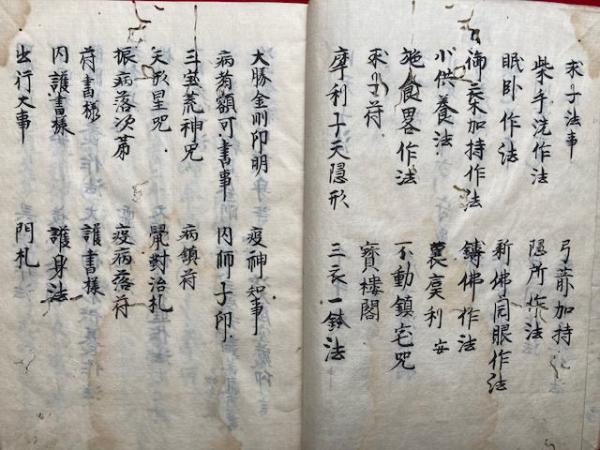 求子法事
柴手洗作法
眠卧作法
衛士加持作法
小供養法
施食畧作法
求子符
摩利十天隠形
弓箭加持
隠所作法
新佛開眼作法
鑄佛作法
裹虞利安
不動鎮宅咒
寳樓閣
三衣一鉢法
大勝金剛印明
病者額可書事
三宝荒神咒
天形星咒
振病落次第
符書様
内護書様
出行大事
疫神知事
内師子印
病鎮符
鬼對治札
疫病落符
護書様
護身法
門札